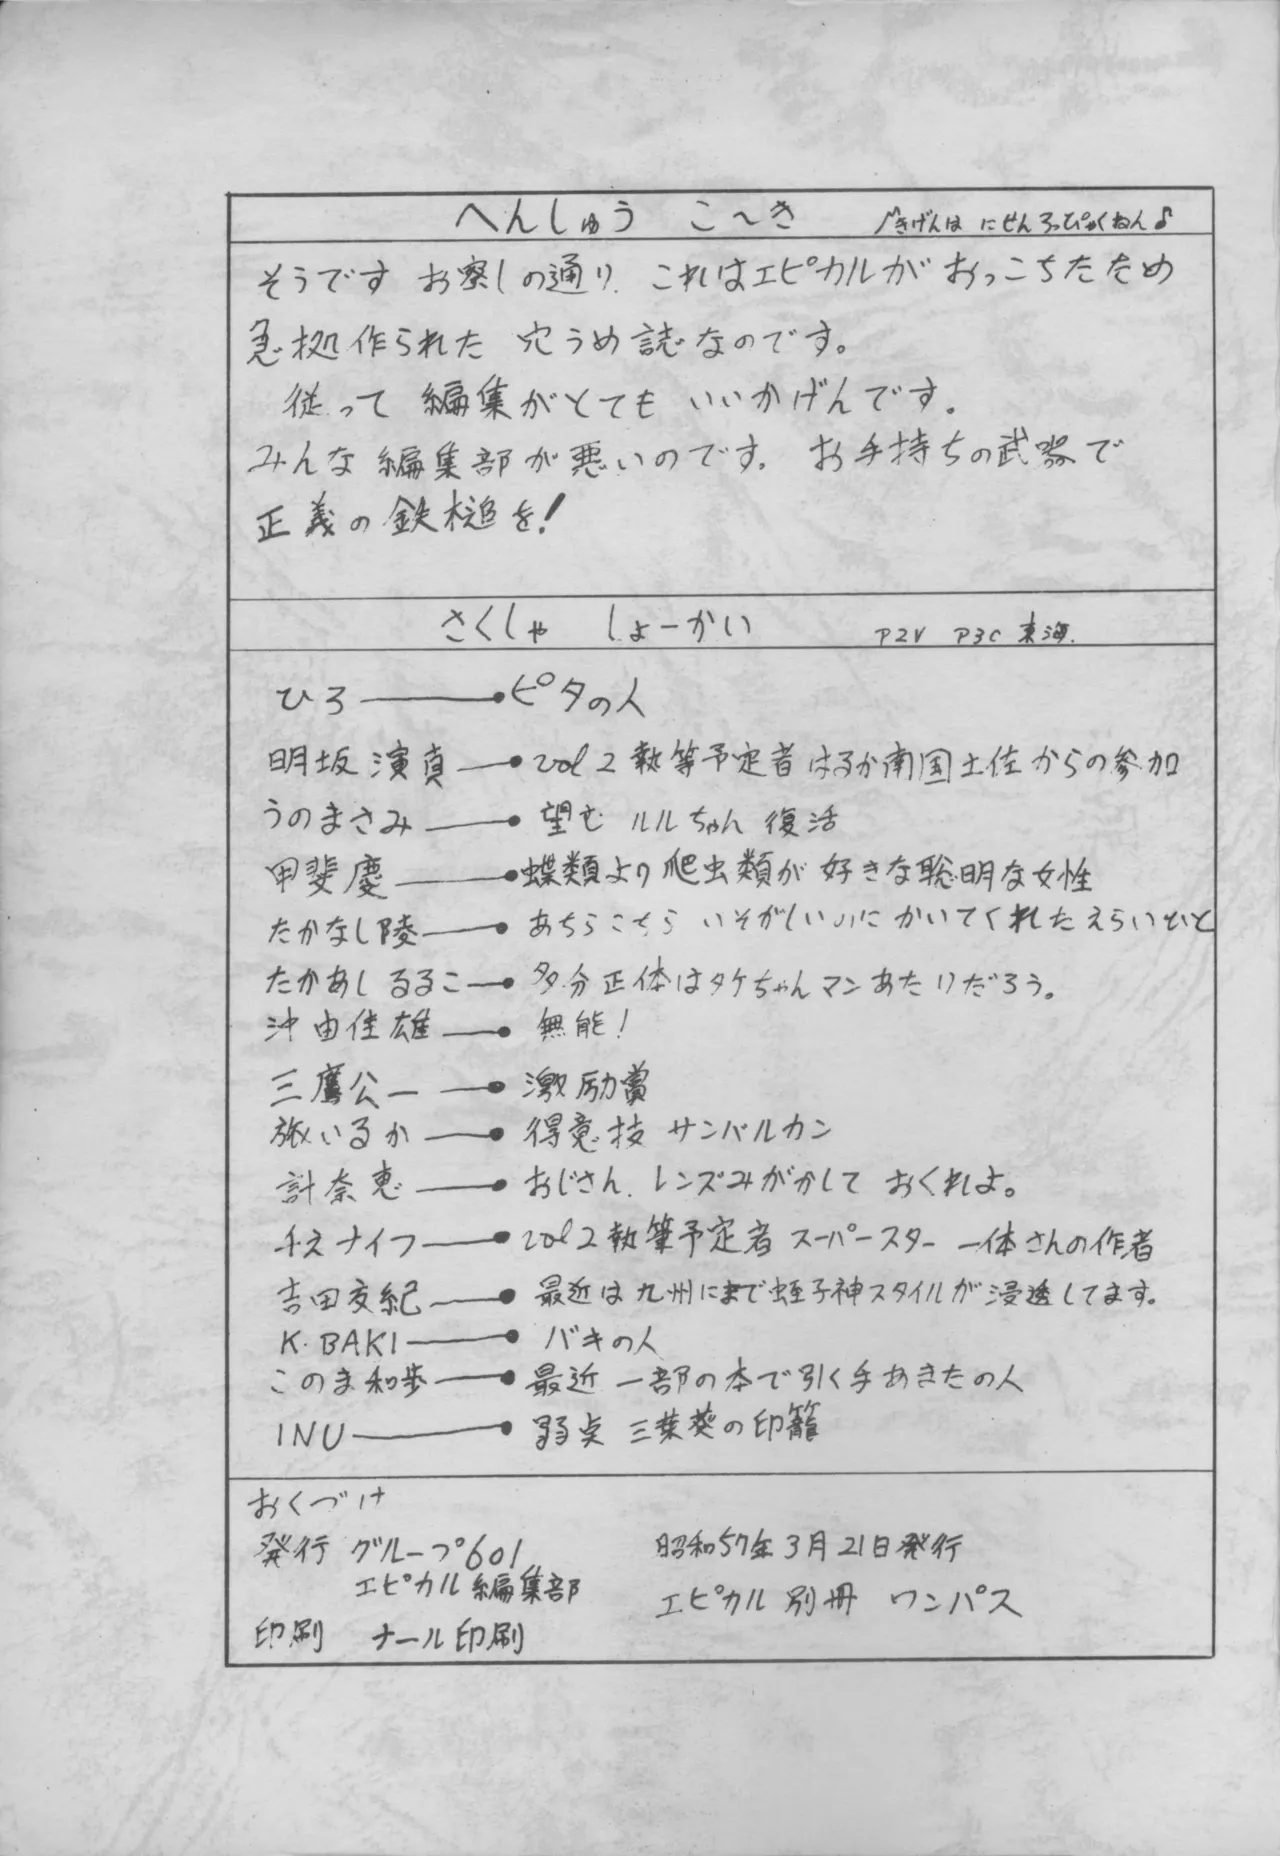 へんしゅう こ～き ♪きげんは にせんろっぴゃくねん♪
そうです お察しの通り これはエピカルがおっこちたため
急拠作られた 穴うめ誌なのです。
従って 編集がとても いいかげんです。
みんな編集部が悪いのです。 お手持ちの武器で
正義の鉄槌を!
さくしゃ しょーかい P2V P3C 東海.
ひろ ピタの人
明坂演真 vol 2 執筆予定者 はるか南国土佐からの参加
うのまさみ 望む ルルちゃん 復活
甲斐慶 蝶類より爬虫類が好きな聡明な女性
たかなし陵 あちらこちら いそがしいのに かいてくれたえらいひと
たかあしるるこ 多分正体はタケちゃんマンあたりだろう。
沖由佳雄 無能!
三鷹公一 激励賞
旅いるか 得意技 サンバルカン
計奈恵 おじさん、レンズみがかして おくれよ。
チエナイフ vol 2 執筆予定者 スーパースター 一体さんの作者
吉田友紀 最近は九州にまで蛭子神スタイルが浸透してます。
K.BAKI バキの人
このま和歩 最近 一部の本で引く手あきたの人
INU 弱点 三葉葵の印籠
おくづけ
発行 グループ601
エピカル編集部
印刷 ナール印刷
昭和57年3月21日発行
エピカル 別冊 ワンパス